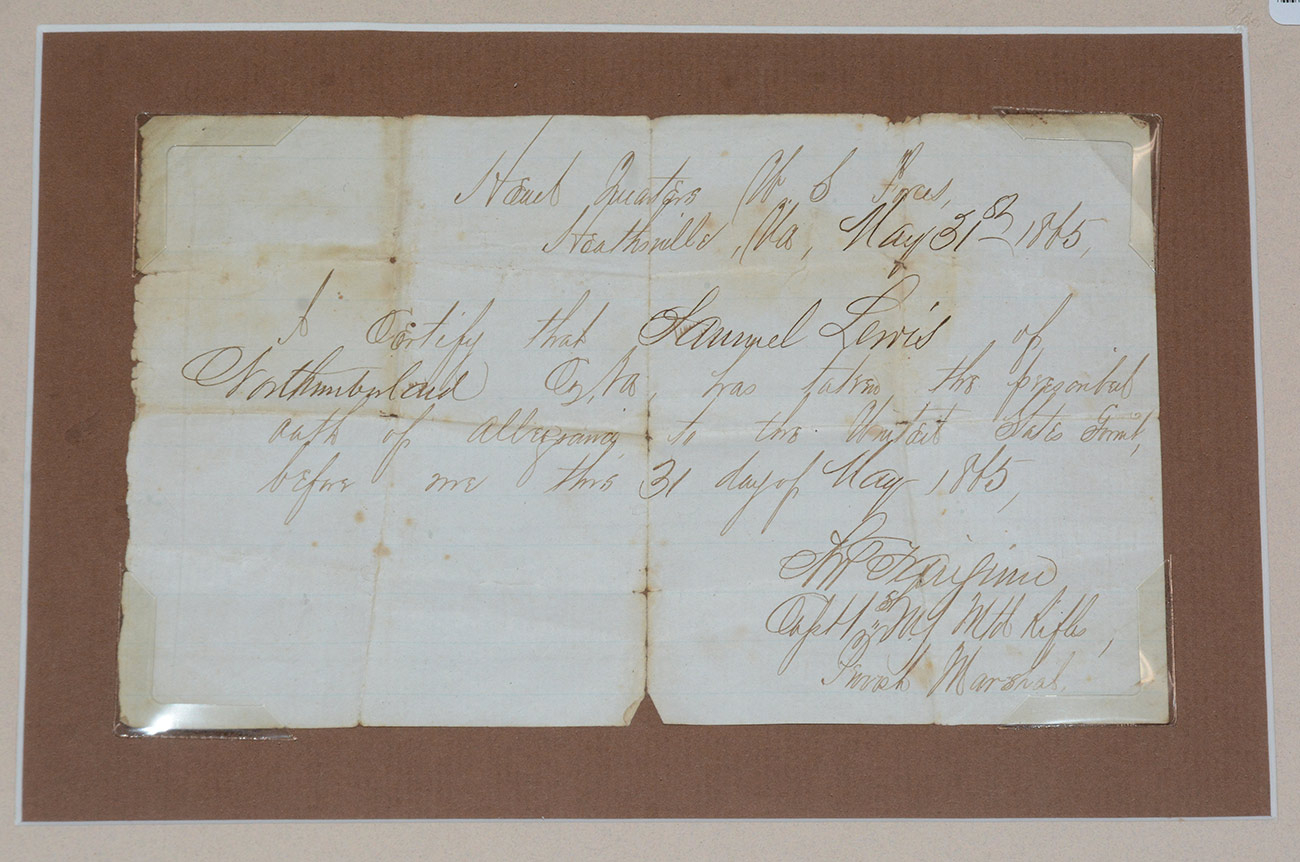 Head Quarters U S Forces,
Heathsville, Va, May 31st 1865,
I Certify that Samuel Lewis of
Northumberland Co, Va, has taken the prescribed
oath of allegiance to the United States Govmt,
before me this 31 day of May 1865,
Capt 1st N.Y. Mtd Rifles,
Provost Marshal.